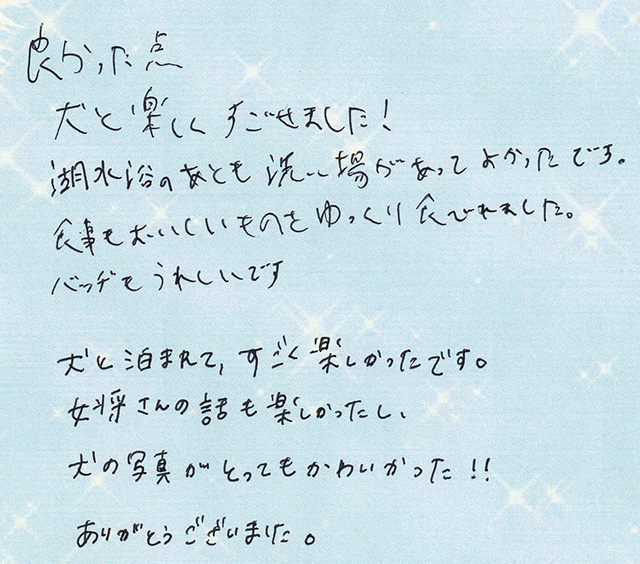 良かった点
犬と楽しくすごせました!
湖水浴のあとも洗い場があってよかったです。
食事もおいしいものをゆっくり食べれました。
バッヂもうれしいです
犬と泊まれて、すごく楽しかったです。
女将さんの話も楽しかったし、
犬の写真がとってもかわいかった!!
ありがとうございました。